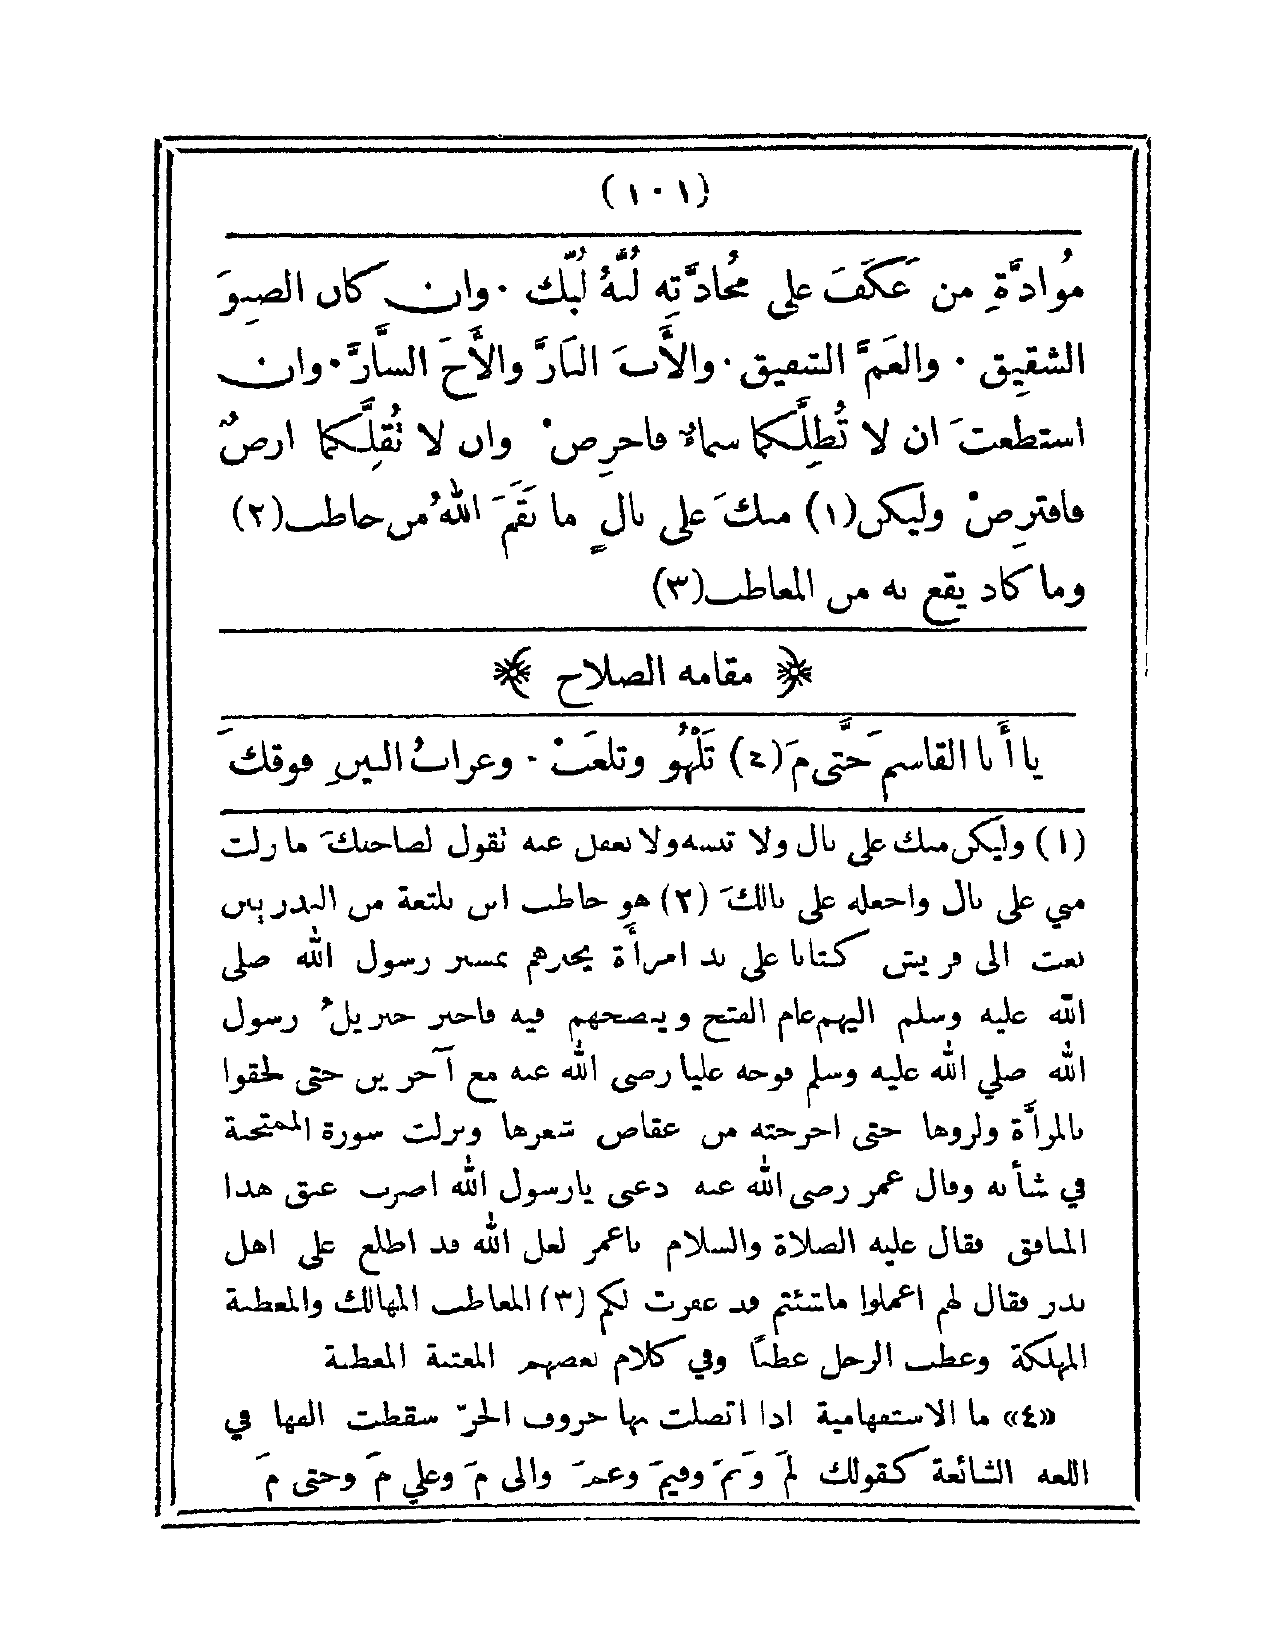 (١٠١)
مُوادَّةِ من عَكَفَ على مُحادَّتِه لُبُّهُ لُبُّك ٠ وان كان الصِنوَ
الشقيق ٠ والعَمَّ الشفيق ٠ والأَبَ البَارَّ والأَخَ السارَّ ٠ وان
استطعتَ ان لا تُظِلَّكما سماءٌ فاحرِصْ وان لا تُقِلَّكما ارضٌ
فافترِصْ وليكن (١) منكَ على بالٍ ما نَقَمَ اللهُ من حاطب (٢)
وما كاد يقع به من المعاطب (٣)
﴿ مقامه الصلاح ﴾
يا أَبا القاسمِ حَتَّى مَ (٤) تَلْهُو وتلعَبْ ٠ وغرابُ البينِ فوقكَ
(١) وليكن منك على بال ولا تنسه ولا تغفل عنه تقول لصاحبكَ ما زلت
مني على بال واجعله على بالكَ (٢) هو حاطب ابن بلتعة من البدريين
بعث الى قريش كتابا على يد امرأة يحذرهم بمسير رسول الله صلى
الله عليه وسلم اليهم عام الفتح وينصحهم فيه فاخبر جبريلُ رسول
الله صلى الله عليه وسلم فوجه عليا رضى الله عنه مع آخرين حتى لحقوا
بالمرأة ولزوها حتى اخرجته من عقاص شعرها ونزلت سورة الممتحنة
في شأنه وقال عمر رضى الله عنه دعنى يارسول الله اضرب عنق هذا
المنافق فقال عليه الصلاة والسلام ياعمر لعل الله قد اطلع على اهل
بدر فقال لهم اعملوا ماشئتم قد غفرت لكم (٣) المعاطب المهالك والمعطبة
المهلكة وعطب الرجل عطباً وفي كلام بعضهم المعتبة المعطبة
«٤» ما الاستفهامية اذا اتصلت بها حروف الجرّ سقطت الفها في
اللغه الشائعة كقولك لمَ وبمَ وفيمَ وعمَ والى مَ وعلى مَ وحتى مَ